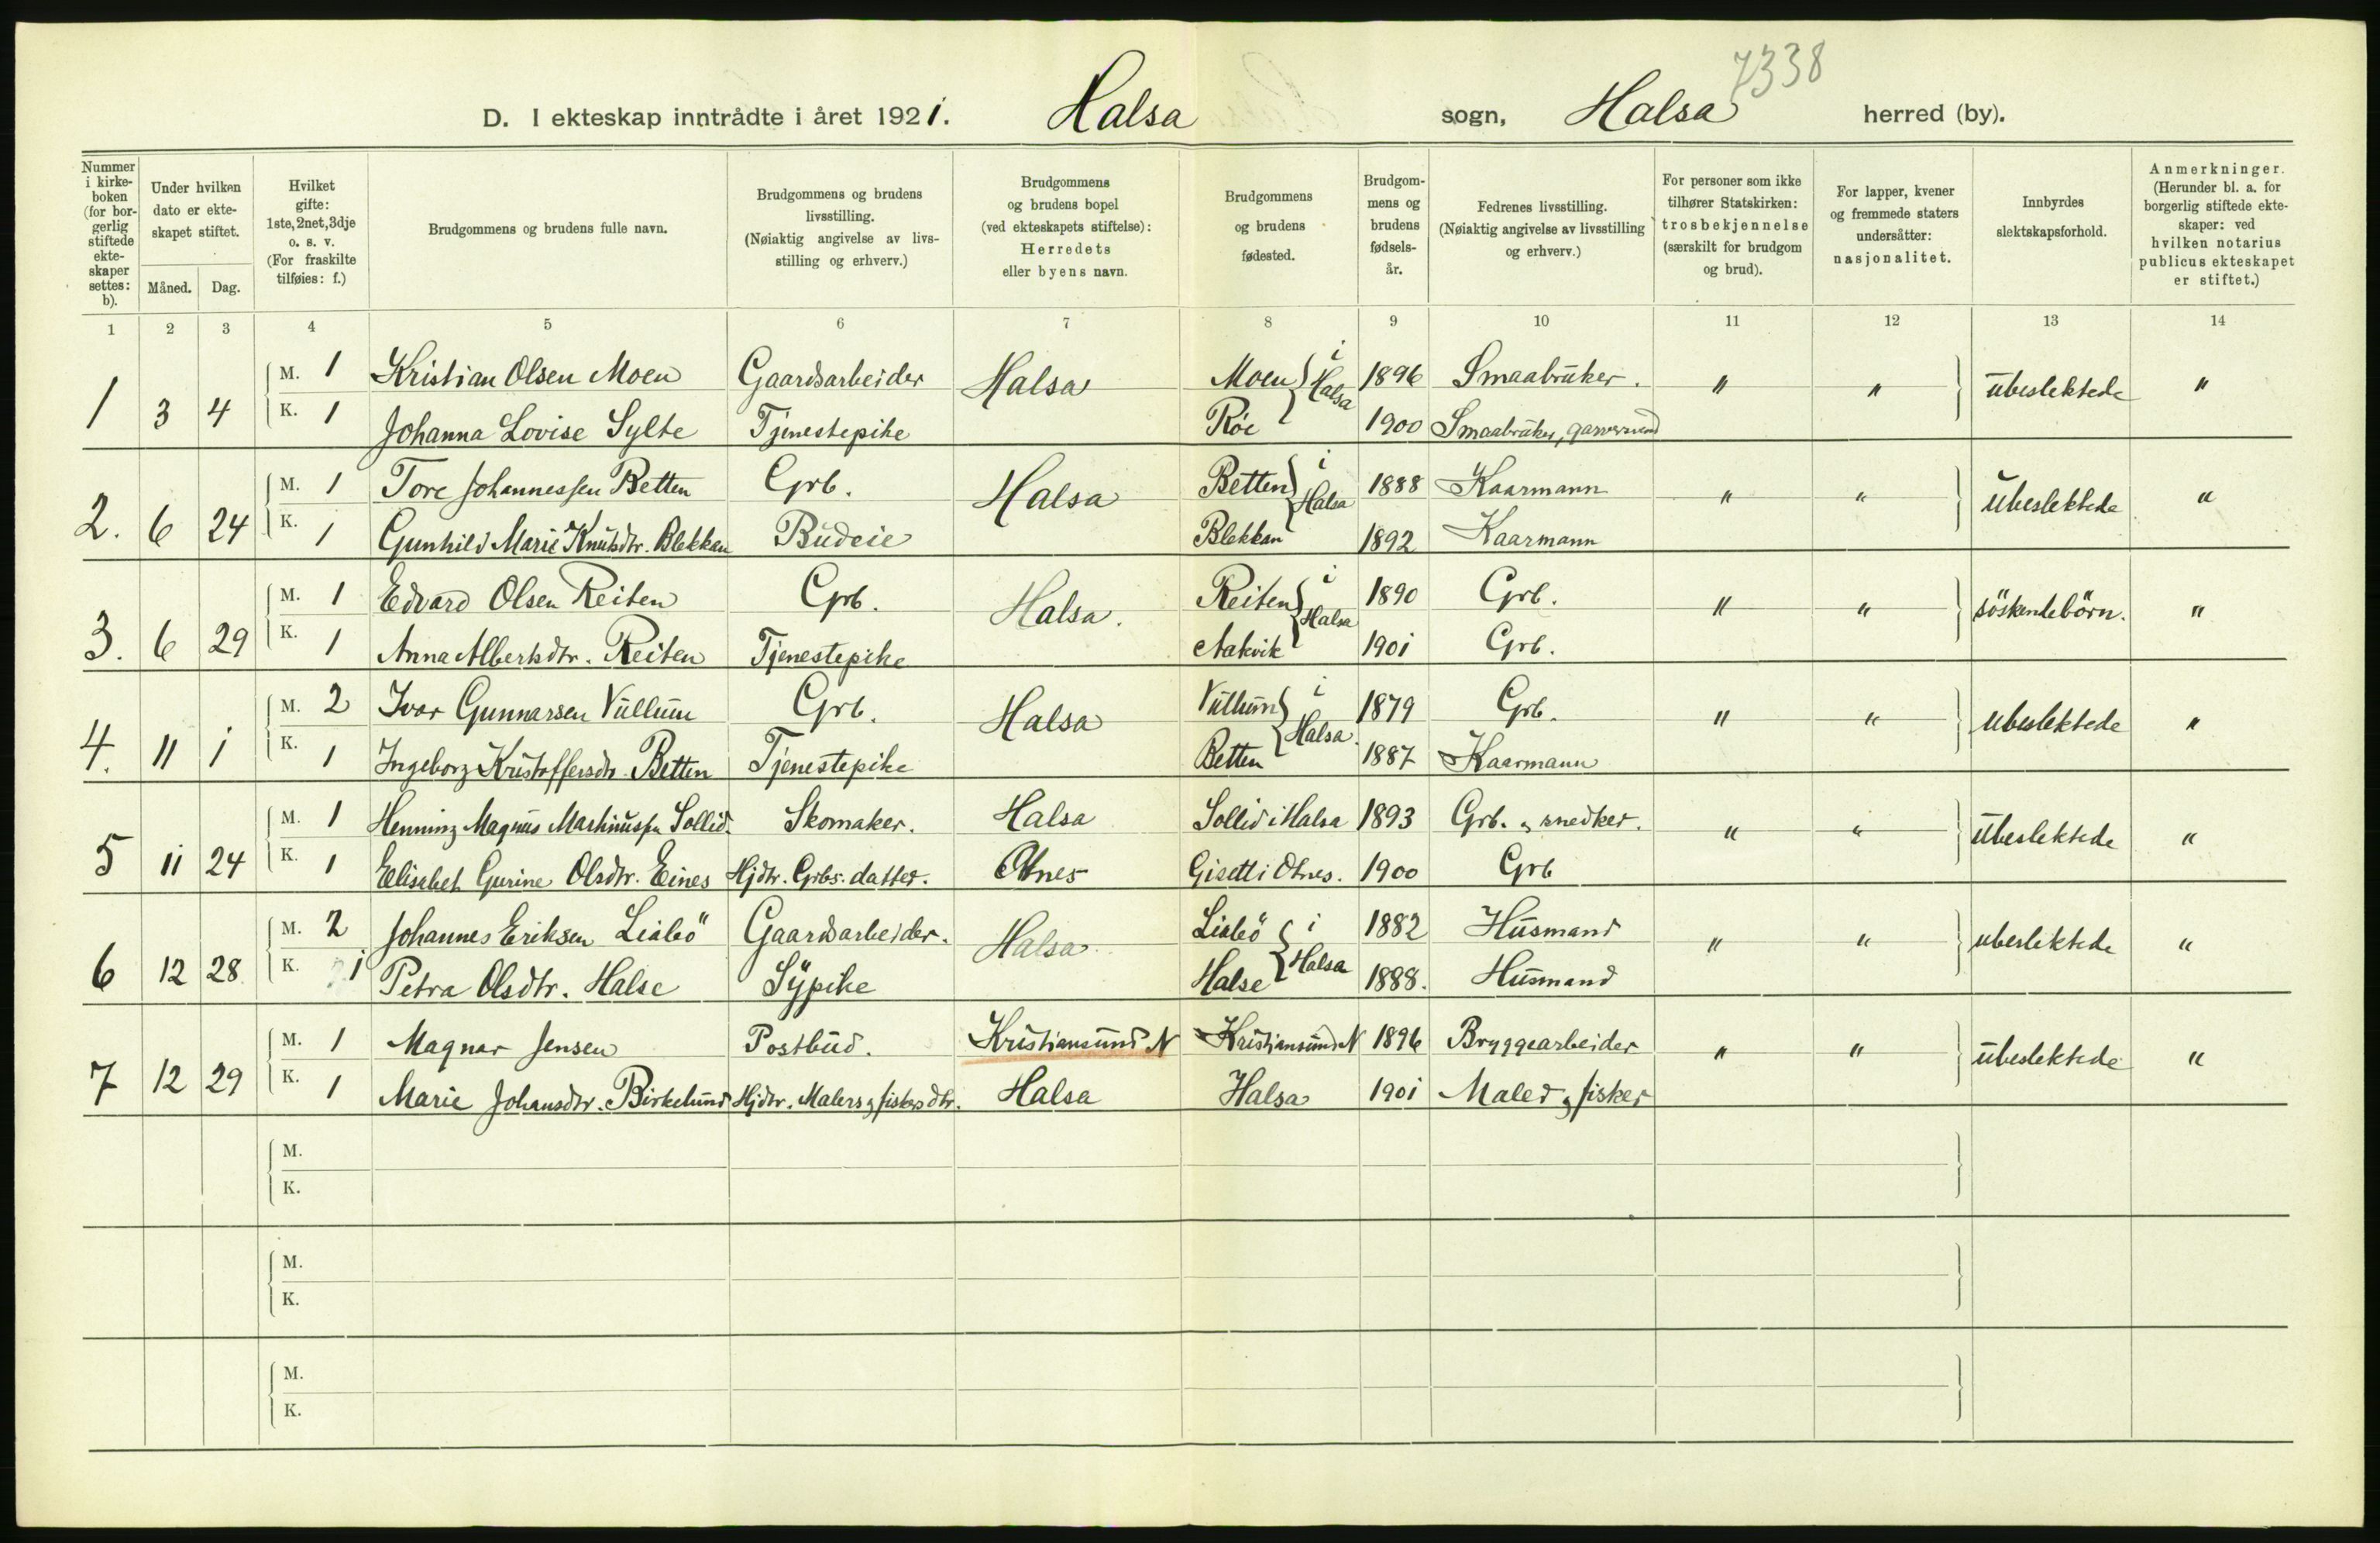 7338
D. I ekteskap inntrådte i året 1921. Halsa sogn, Halsa herred (by).
Nummer i kirke- boken (for bor- gerlig stiftede ekte- skaper settes: b).
Under hvilken dato er ekte- skapet stiftet.
Måned. Dag.
Hvilket gifte: 1ste, 2net, 3dje o. s. v. (For fraskilte tilføies: f.)
Brudgommens og brudens fulle navn.
Brudgommens og brudens livsstilling. (Nøiaktig angivelse av livs- stilling og erhverv.)
Brudgommens og brudens bopel (ved ekteskapets stiftelse): Herredets eller byens navn.
Brudgommens og brudens fødested.
Brudgom- mens og brudens fødsels- år.
Fedrenes livsstilling. (Nøiaktig angivelse av livsstilling og erhverv.)
For personer som ikke tilhører Statskirken: trosbekjennelse (særskilt for brudgom og brud).
For lapper, kvener og fremmede staters undersåtter: nasjonalitet.
Innbyrdes slektskapsforhold.
Anmerkninger. (Herunder bl. a. for borgerlig stiftede ekte- skaper: ved hvilken notarius publicus ekteskapet er stiftet.)
1 2 3 4 5 6 7 8 9 10 11 12 13 14
1 3 4 M. 1 Kristian Olsen Moen Gaardsarbeider Halsa Moen i Halsa 1896 Smaabruker. " " ubeslektede "
K. 1 Johanna Lovise Sylte Tjenestepike Röe 1900 Smaabruker, garversvend
2. 6 24 M. 1 Tore Johannessen Betten Grb. Halsa Betten i Halsa 1888 Kaarmann " " Ubeslektede "
K. 1 Gunhild Marie Knutsdtr. Blekkan Budeie Blekkan 1892 Kaarmann
3. 6 29 M. 1 Edvard Olsen Reiten Grb. Halsa. Reiten i Halsa 1890 Grb. " " söskendebörn. "
K. 1 Anna Albertsdtr. Reiten Tjenestepike Aakvik 1901 Grb.
4. 11 1 M. 2 Ivar Gunnarsen Vullum Grb. Halsa Vullum i Halsa 1879 Grb. " " ubeslektede "
K. 1 Ingeborg Kristoffersdtr. Betten Tjenestepike Betten 1887 Kaarmann
5 11 24 M. 1 Henning Magnus Martinussen Sollid. Skomaker. Halsa Sollid i Halsa 1893 Grb. & snedker. " " Ubeslektede "
K. 1 Elisabet Gurine Olsdtr. Eines Hjdtr. Grbs. datter. Otnes Gisetti Otnes. 1900 Grb
6 12 28 M. 2 Johannes Eriksen Liabö Gaardsarbeider. Halsa Liabö i Halsa 1882 Husmand " " ubeslektede "
K. 1 Petra Olsdtr. Halse Sypike Halse 1888. Husmand
7 12 29 M. 1 Magnar Jensen Postbud. Kristiansund N Kristiansund N 1896 Bryggearbeider " " ubeslektede "
K. 1 Marie Johansdtr. Birkelund Hjdtr. Malers & fiskers dtr. Halsa Halsa 1901 Maler & fisker
M.
K.
M.
K.
M.
K.